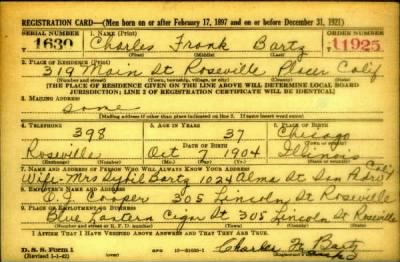 REGISTRATION CARD—(Men born on or after February 17, 1897 and on or before December 31, 1921)
SERIAL NUMBER 1. NAME (Print) ORDER NUMBER
1630 Charles Frank Bartz 11925
(First) (Middle) (Last)
2. PLACE OF RESIDENCE (Print)
319 Main St Roseville Placer Calif
(Number and street) (Town, township, village, or city) (County) (State)
[THE PLACE OF RESIDENCE GIVEN ON THE LINE ABOVE WILL DETERMINE LOCAL BOARD
JURISDICTION; LINE 2 OF REGISTRATION CERTIFICATE WILL BE IDENTICAL]
3. MAILING ADDRESS
Same
[Mailing address if other than place indicated on line 2. If same insert word same]
4. TELEPHONE 5. AGE IN YEARS 6. PLACE OF BIRTH
398 37 Chicago
DATE OF BIRTH (Town or county)
Roseville Oct 7 1904 Illinois
(Exchange) (Number) (Mo.) (Day) (Yr.) (State or country)
7. NAME AND ADDRESS OF PERSON WHO WILL ALWAYS KNOW YOUR ADDRESS Calif
Wife Mrs Bartz 1024 Alma St San Pedro
8. EMPLOYER'S NAME AND ADDRESS
Cooper 305 Lincoln St Roseville
9. PLACE OF EMPLOYMENT OR BUSINESS
Blue Lantern Cigar St 305 Lincoln St Roseville
(Number and street or R. F. D. number) (Town) (County) (State)
I AFFIRM THAT I HAVE VERIFIED ABOVE ANSWERS AND THAT THEY ARE TRUE.
D. S. S. Form 1
(Revised 1-1-42)
Charles F. Bartz